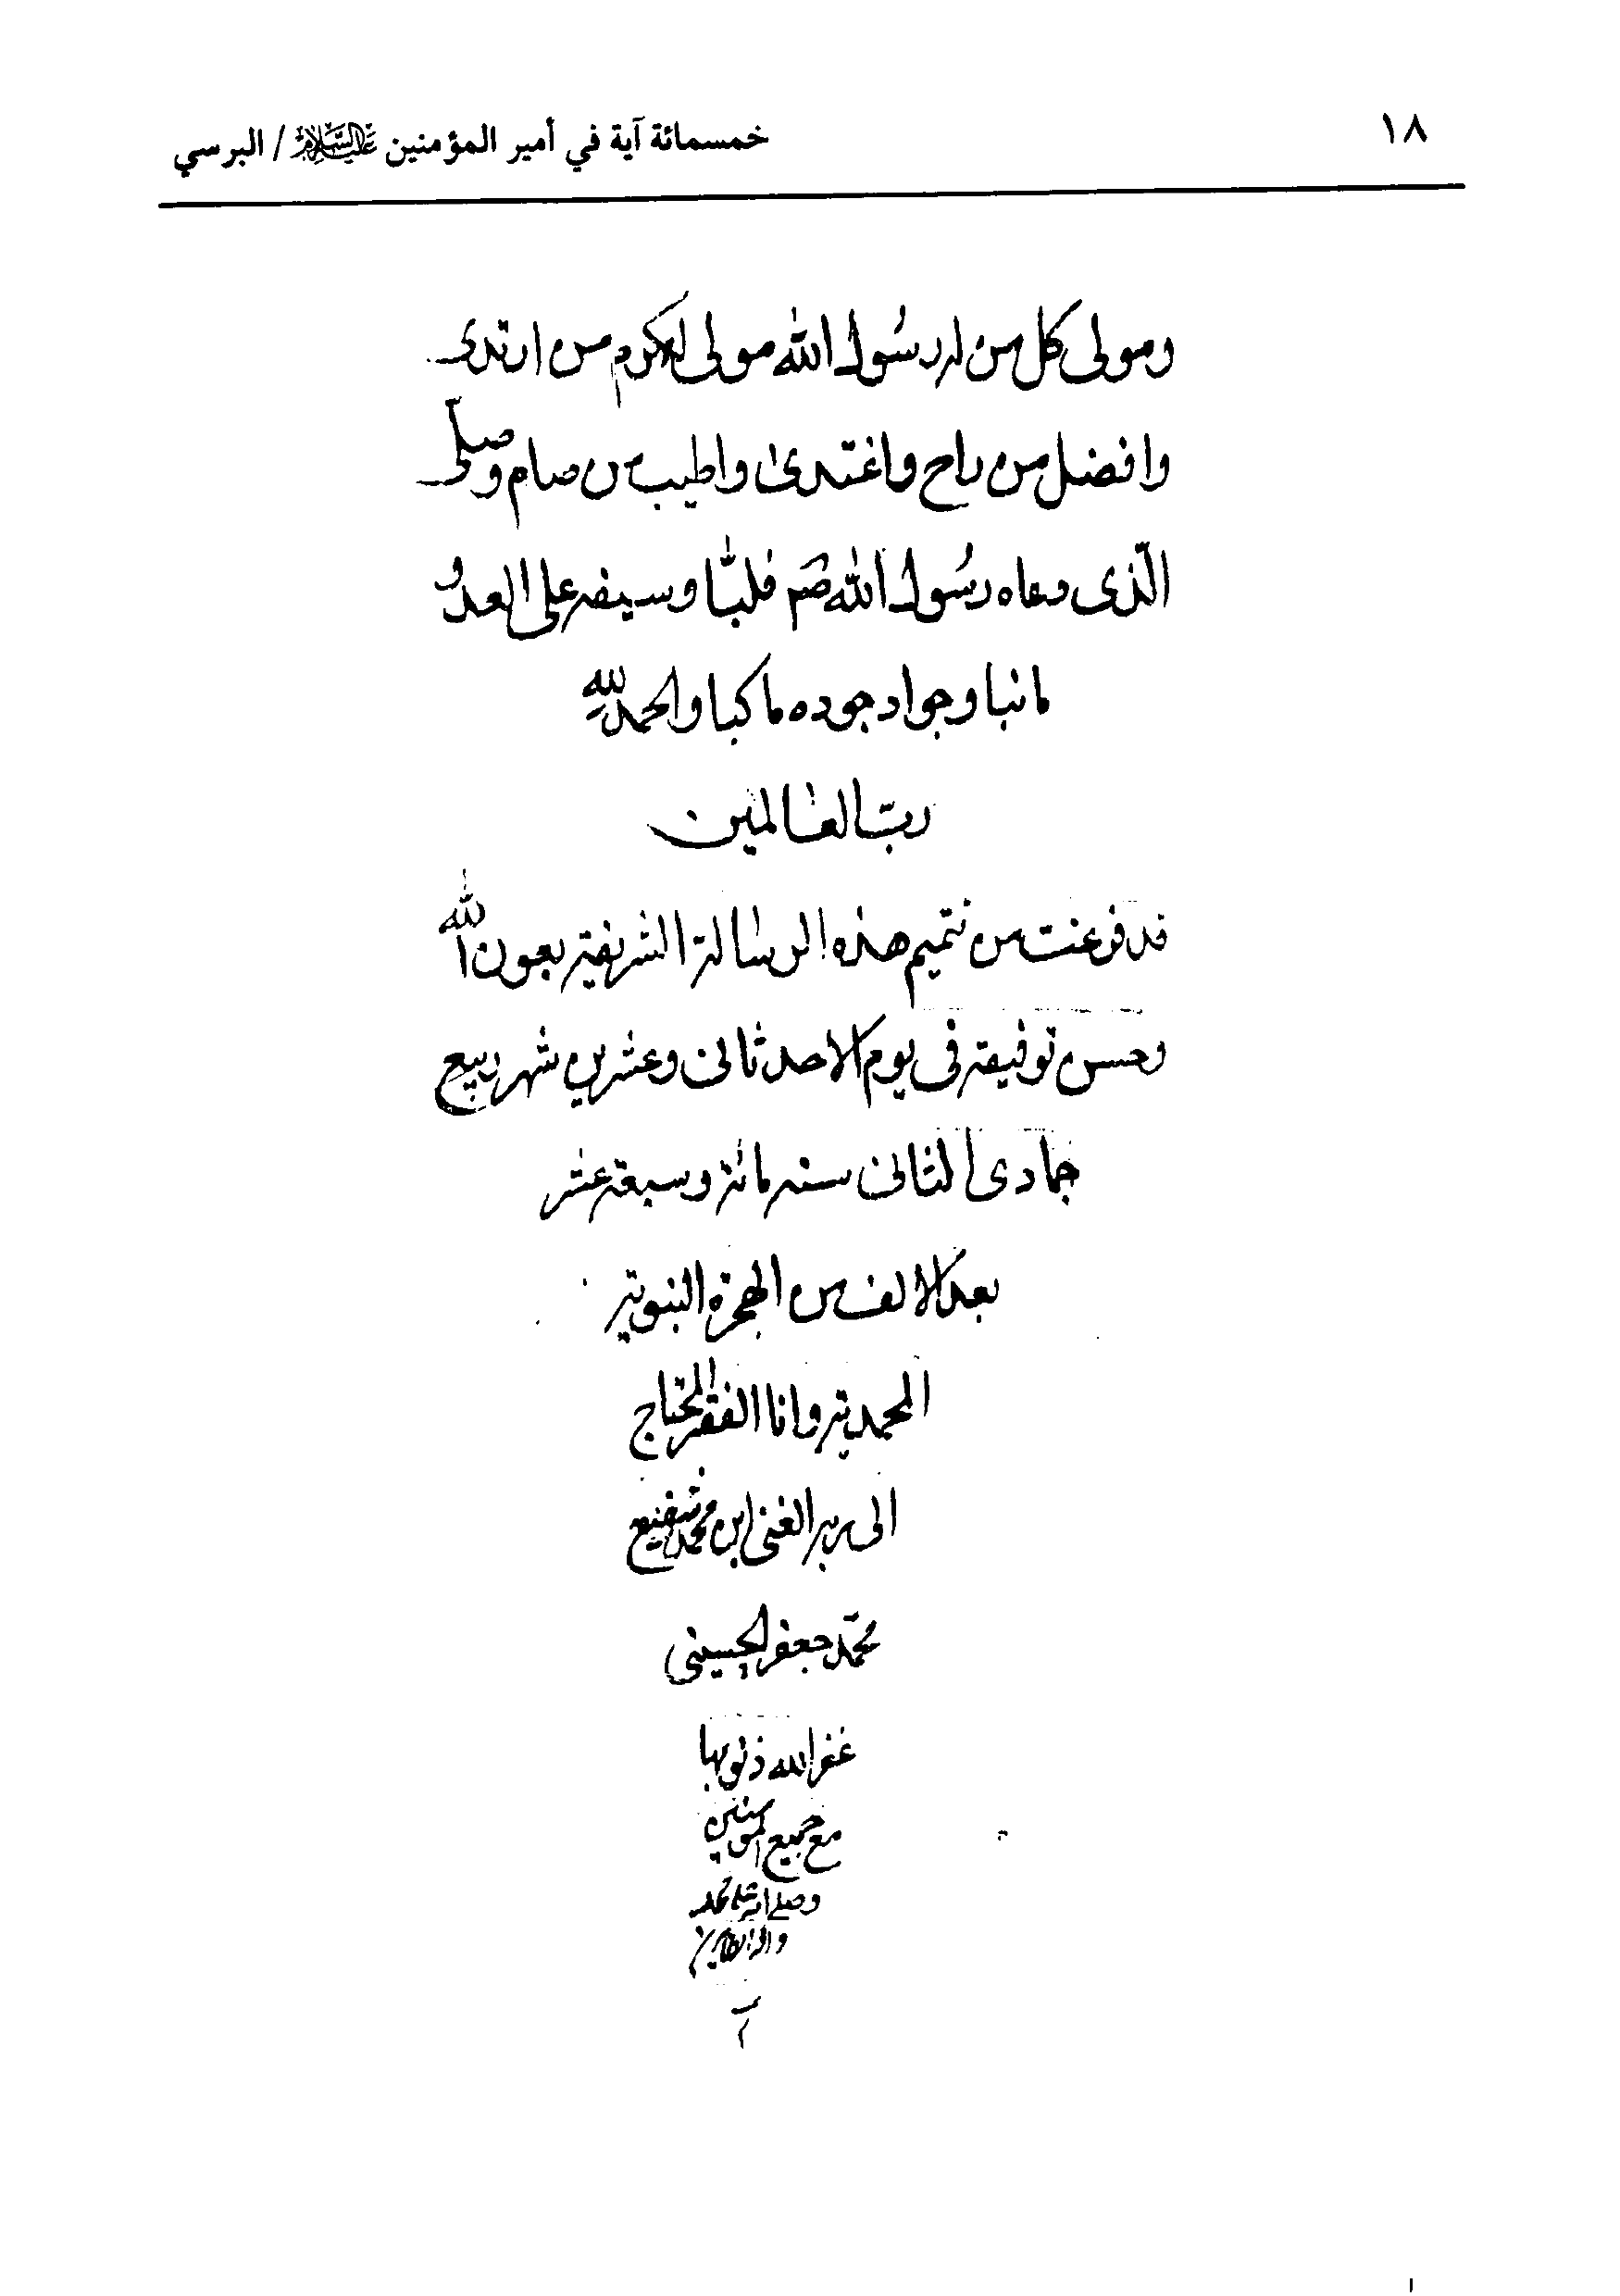 ١٨
خمسمائة آية في أمير المؤمنين عليه السلام / البرسي
ومولى كل من له رسول الله مولى اكرم من ارتدى
وافضل من راح واغتدى واطيب من صام وصلى
الذى دعاه رسول الله صم فلبا وسيفه على العدو
ما نبا وجواد جوده ما كبا والحمد لله
رب العالمين
قد فرغت من تتميم هذه الرسالة الشريفة بعون الله
وحسن توفيقه فى يوم الاحد ثانى وعشرين شهر ربيع
جمادى الثانى سنه مائة وسبعة عشر
بعد الالف من الهجرة النبوية
المحمدية وانا الفقير المحتاج
الى ربه الغنى ابن محمد شفيع
محمد جعفر الحسينى
غفر الله ذنوبها
مع جميع المومنين
وصلى الله على محمد
واله الطاهرين